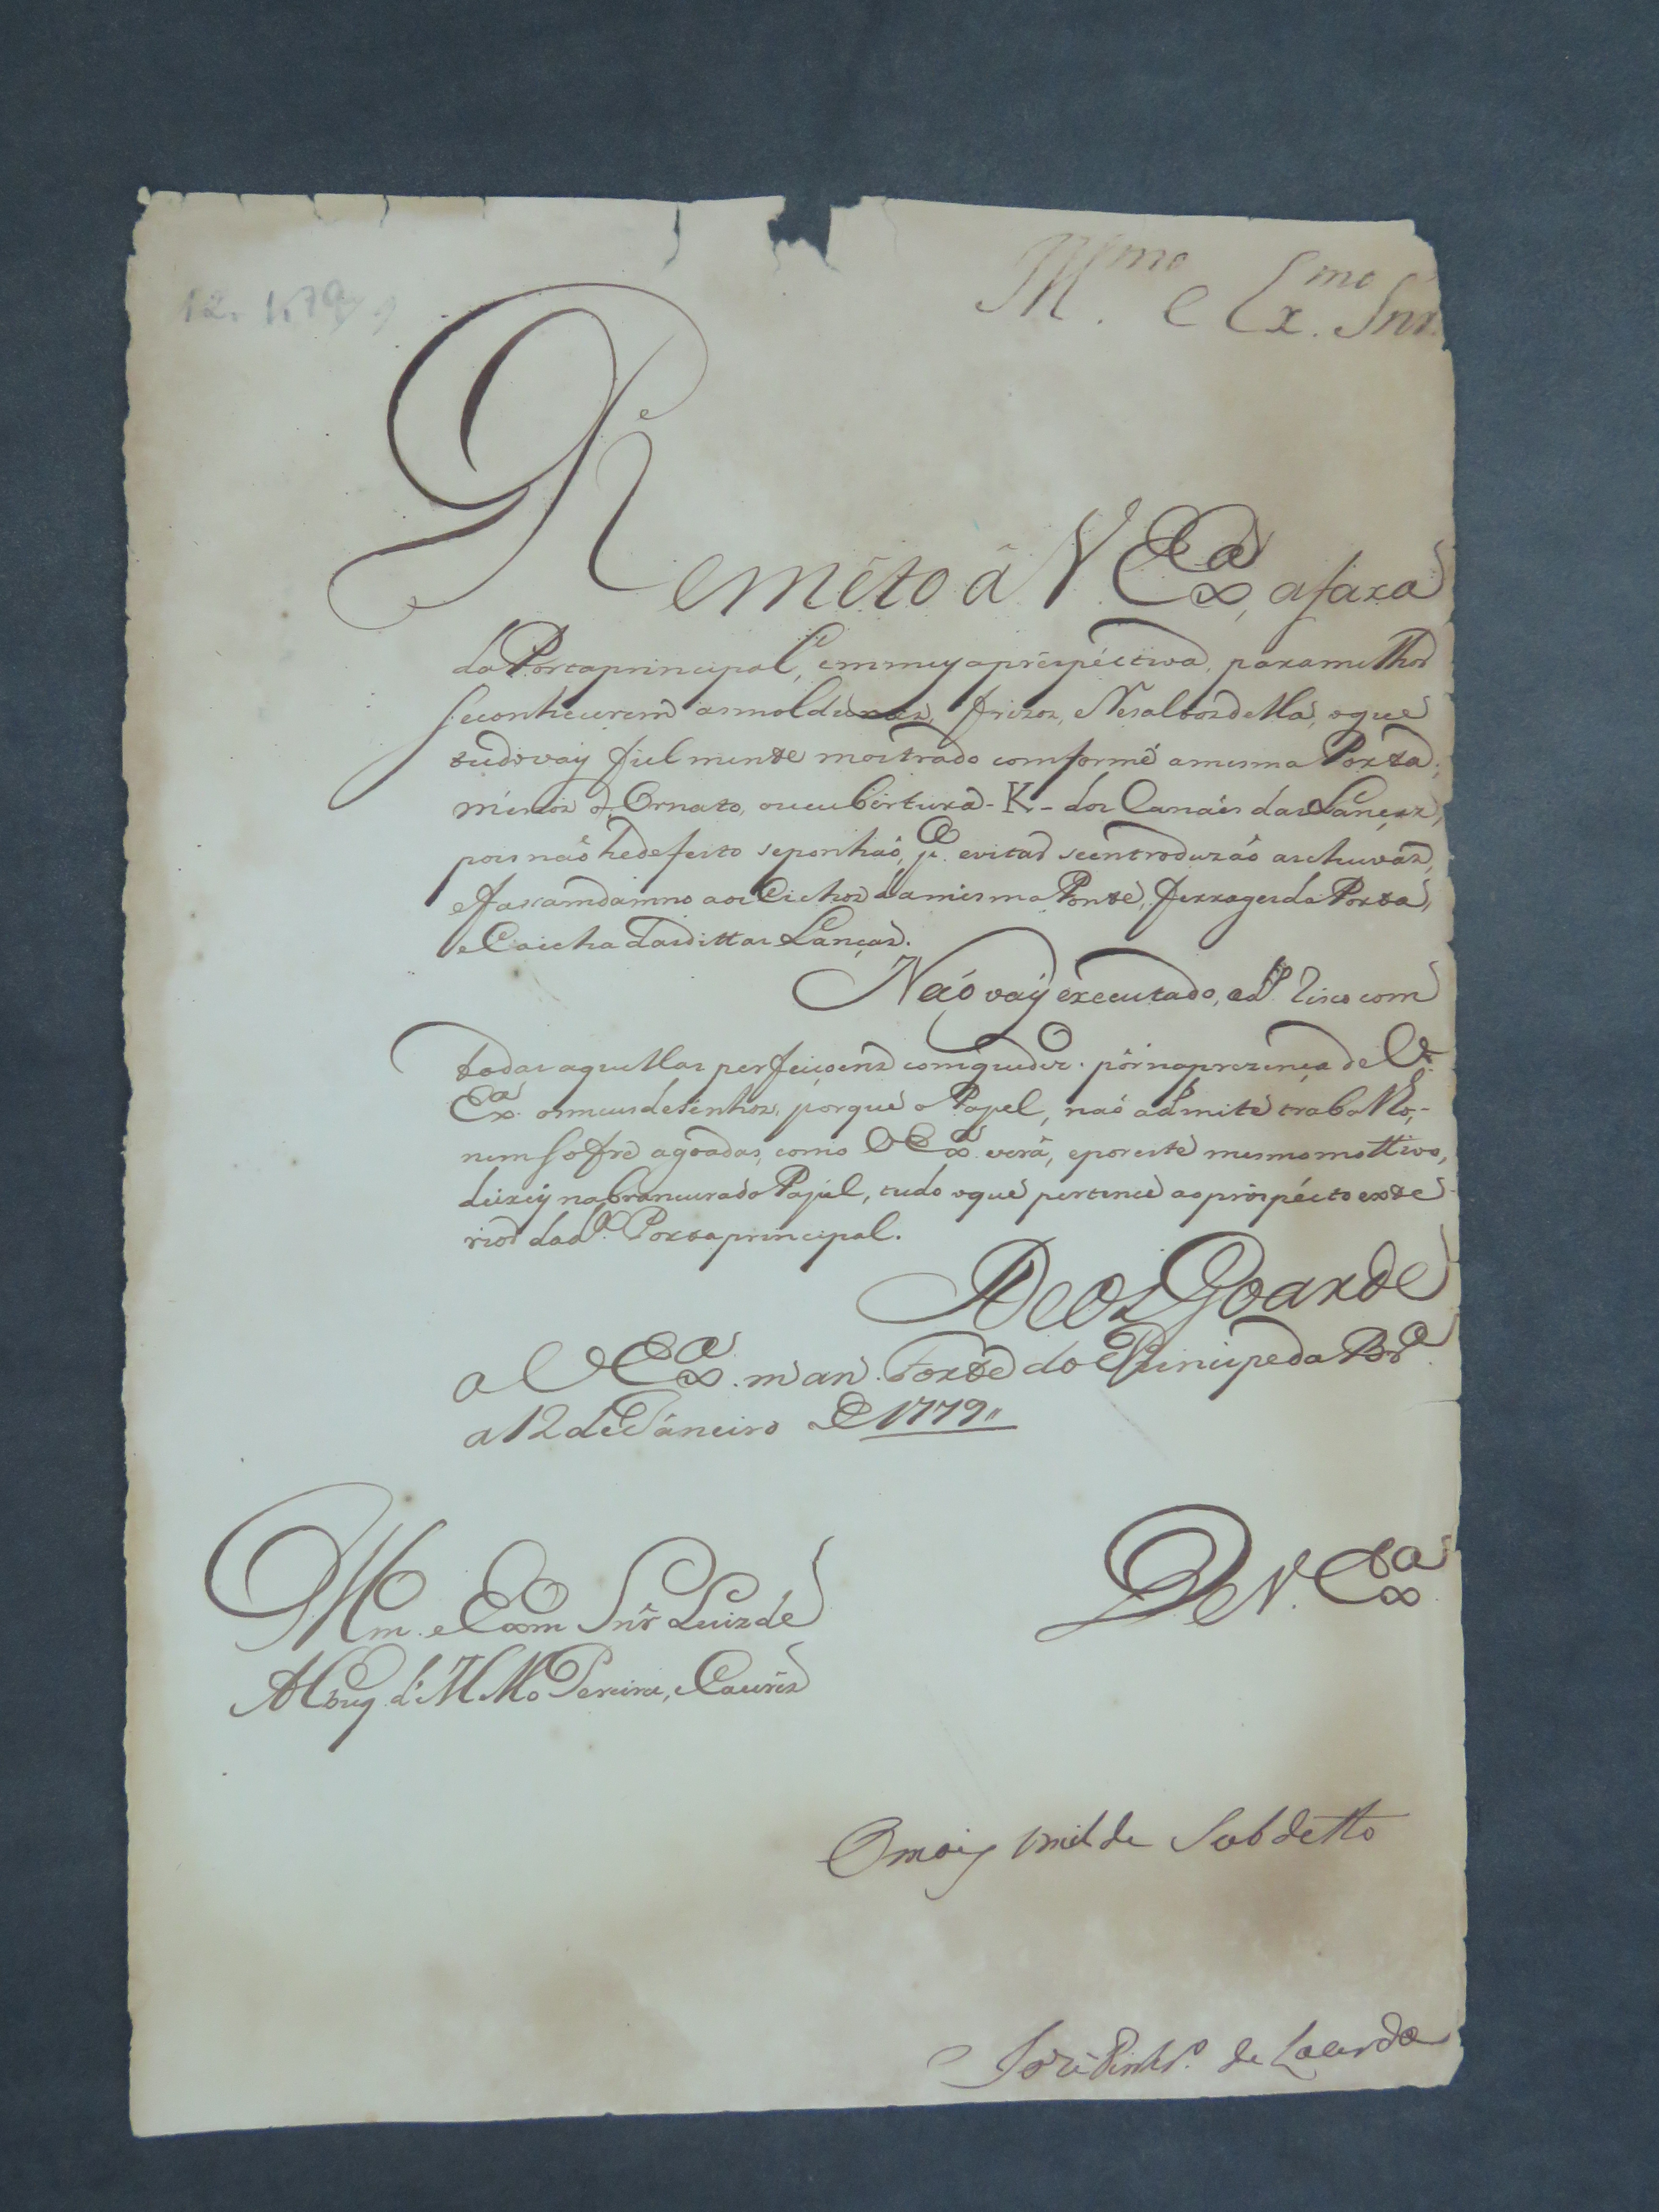 12. 1. 79
Ill.mo e Ex.mo Snr.
Remeto â V. Ex.ª, a faxa
da Porta principal, em meya prespéctiva, para milhor
se conhecerem as molduras, frizos, e Resaltos della, o que
tudo vay fiel mente mostrado comforme a mesma Porta,
menos o Ornato, ou cubertura - K - dos Canáes das Lanças,
pois não he defeito se ponhaõ, p.ª evitar se entroduzaõ as chuvas,
e fasam damno aos Eichos da mesma Ponte, ferrages da Porta,
e Caicha das dittas Lanças.
Naõ vaÿ executado, o d.º Risco com
todas aquellas perfeiçoens com que dez.º pôr na prezença de V.
Ex.ª os meus desenhos, porque o Papel, naõ admite trabalho,-
nem sofre agoadas, como V. Ex.ª verâ, e por este mesmo mottivo,
deixeÿ na brancura do Papel, tudo o que pertence ao prospécto exte-
rior da d.ª Porta principal.
Deos Goarde
a V. Ex.ª m. an. Forte do Principe da Br.ª
a 12 de Janeiro de 1779,,
Illm. e Exm Snr̂ Luiz de
Albuq. d' Mello Pereira, e Caceres
De V. Ex.ª
O mais umilde Subdetto
José Pinhr.º de Lacerda